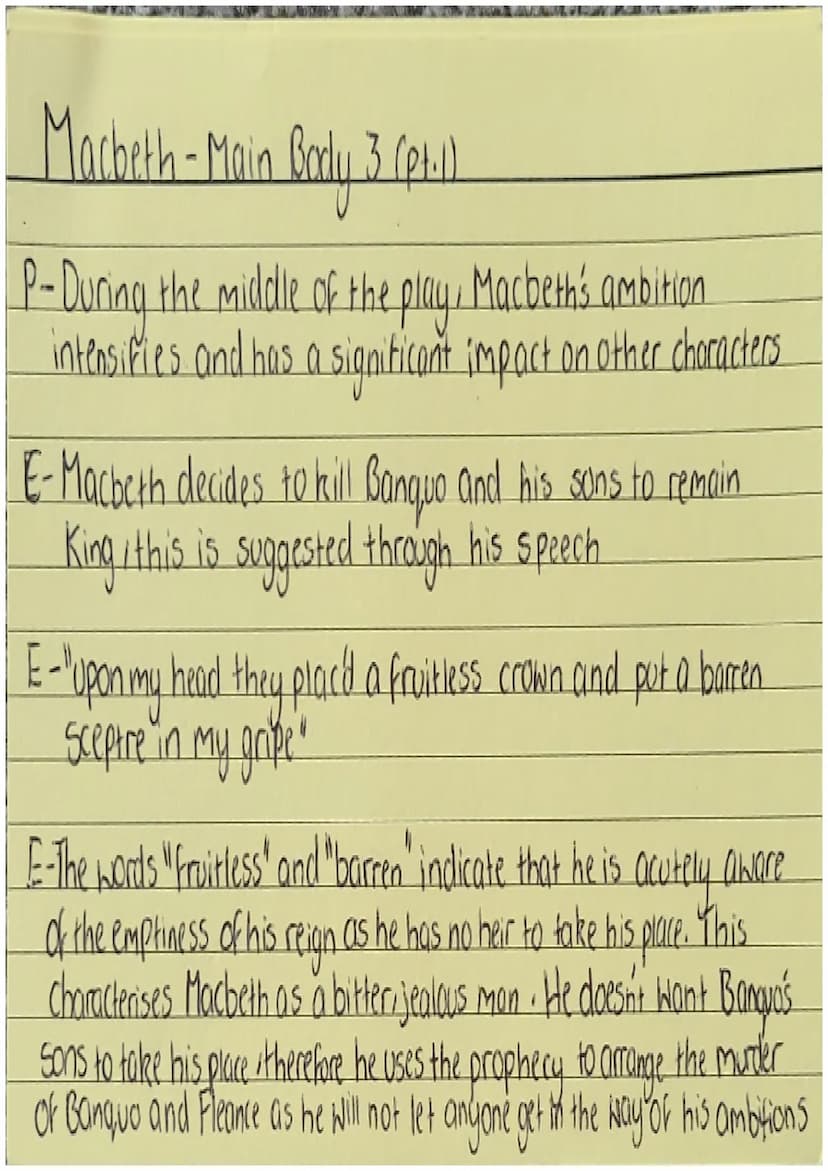 Macbeth - Main Body 3 (pt.1)
P- During the middle of the play, Macbeth's ambition
intensifies and has a significant impact on other characters
E- Macbeth decides to kill Banquo and his sons to remain
King, this is suggested through his speech
E- "upon my head they plac'd a fruitless crown and put a barren
sceptre in my gripe"
E- The words "fruitless" and "barren" indicate that he is acutely aware
of the emptiness of his reign as he has no heir to take his place. This
characterises Macbeth as a bitter, jealous man. He doesn't want Banquo's
sons to take his place, therefore he uses the prophecy to arrange the murder
of Banquo and Fleance as he will not let anyone get in the way of his ambitions